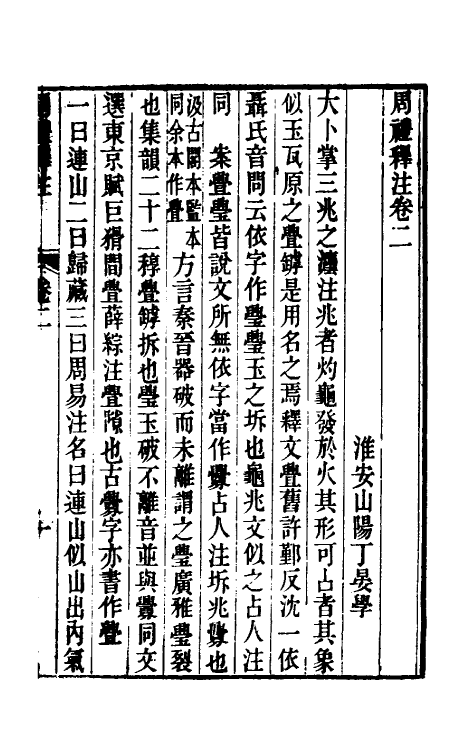 周禮釋注卷二
淮安山陽丁晏學
大卜掌三兆之灋注兆者灼龜發於火其形可占者其象
似玉瓦原之璺罅是用名之焉釋文璺舊許鄞反沈一依
聶氏音問云依字作璺璺玉之坼也龜兆文似之占人注
同　案璺璺皆說文所無依字當作釁占人注坼兆釁也
汲古閣本監本
同余本作璺
方言秦晉器破而未離謂之璺廣雅璺裂
也集韻二十二稕璺罅拆也璺玉破不離音並與釁同文
選東京賦巨猾閒璺薛綜注璺隙也古釁字亦書作璺
一曰連山二曰歸藏三曰周易注名曰連山似山出內氣
卷二